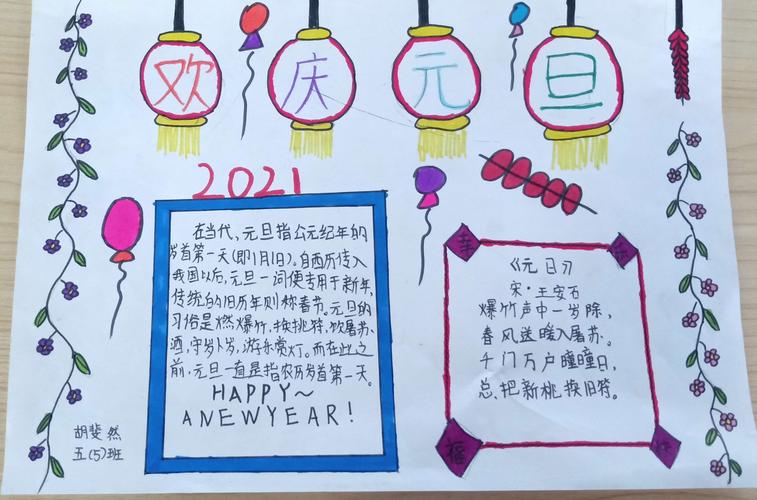 欢庆元旦
2021
在当代,元旦指公元纪年的
岁首第一天(即1月1日)。自西历传入
我国以后,元旦一词便专用于新年,
传统的旧历年则称春节。元旦的
习俗是燃爆竹,换挑符,饮屠苏
酒,守岁卜岁,游乐赏灯。而在此之
前,元旦一直是指农历岁首第一天。
HAPPY~
A NEW YEAR!
胡斐然
五(5)班
幸
乐
《元日》
宋·王安石
爆竹声中一岁除,
春风送暖入屠苏。
千门万户曈曈日,
总把新桃换旧符。
福
快